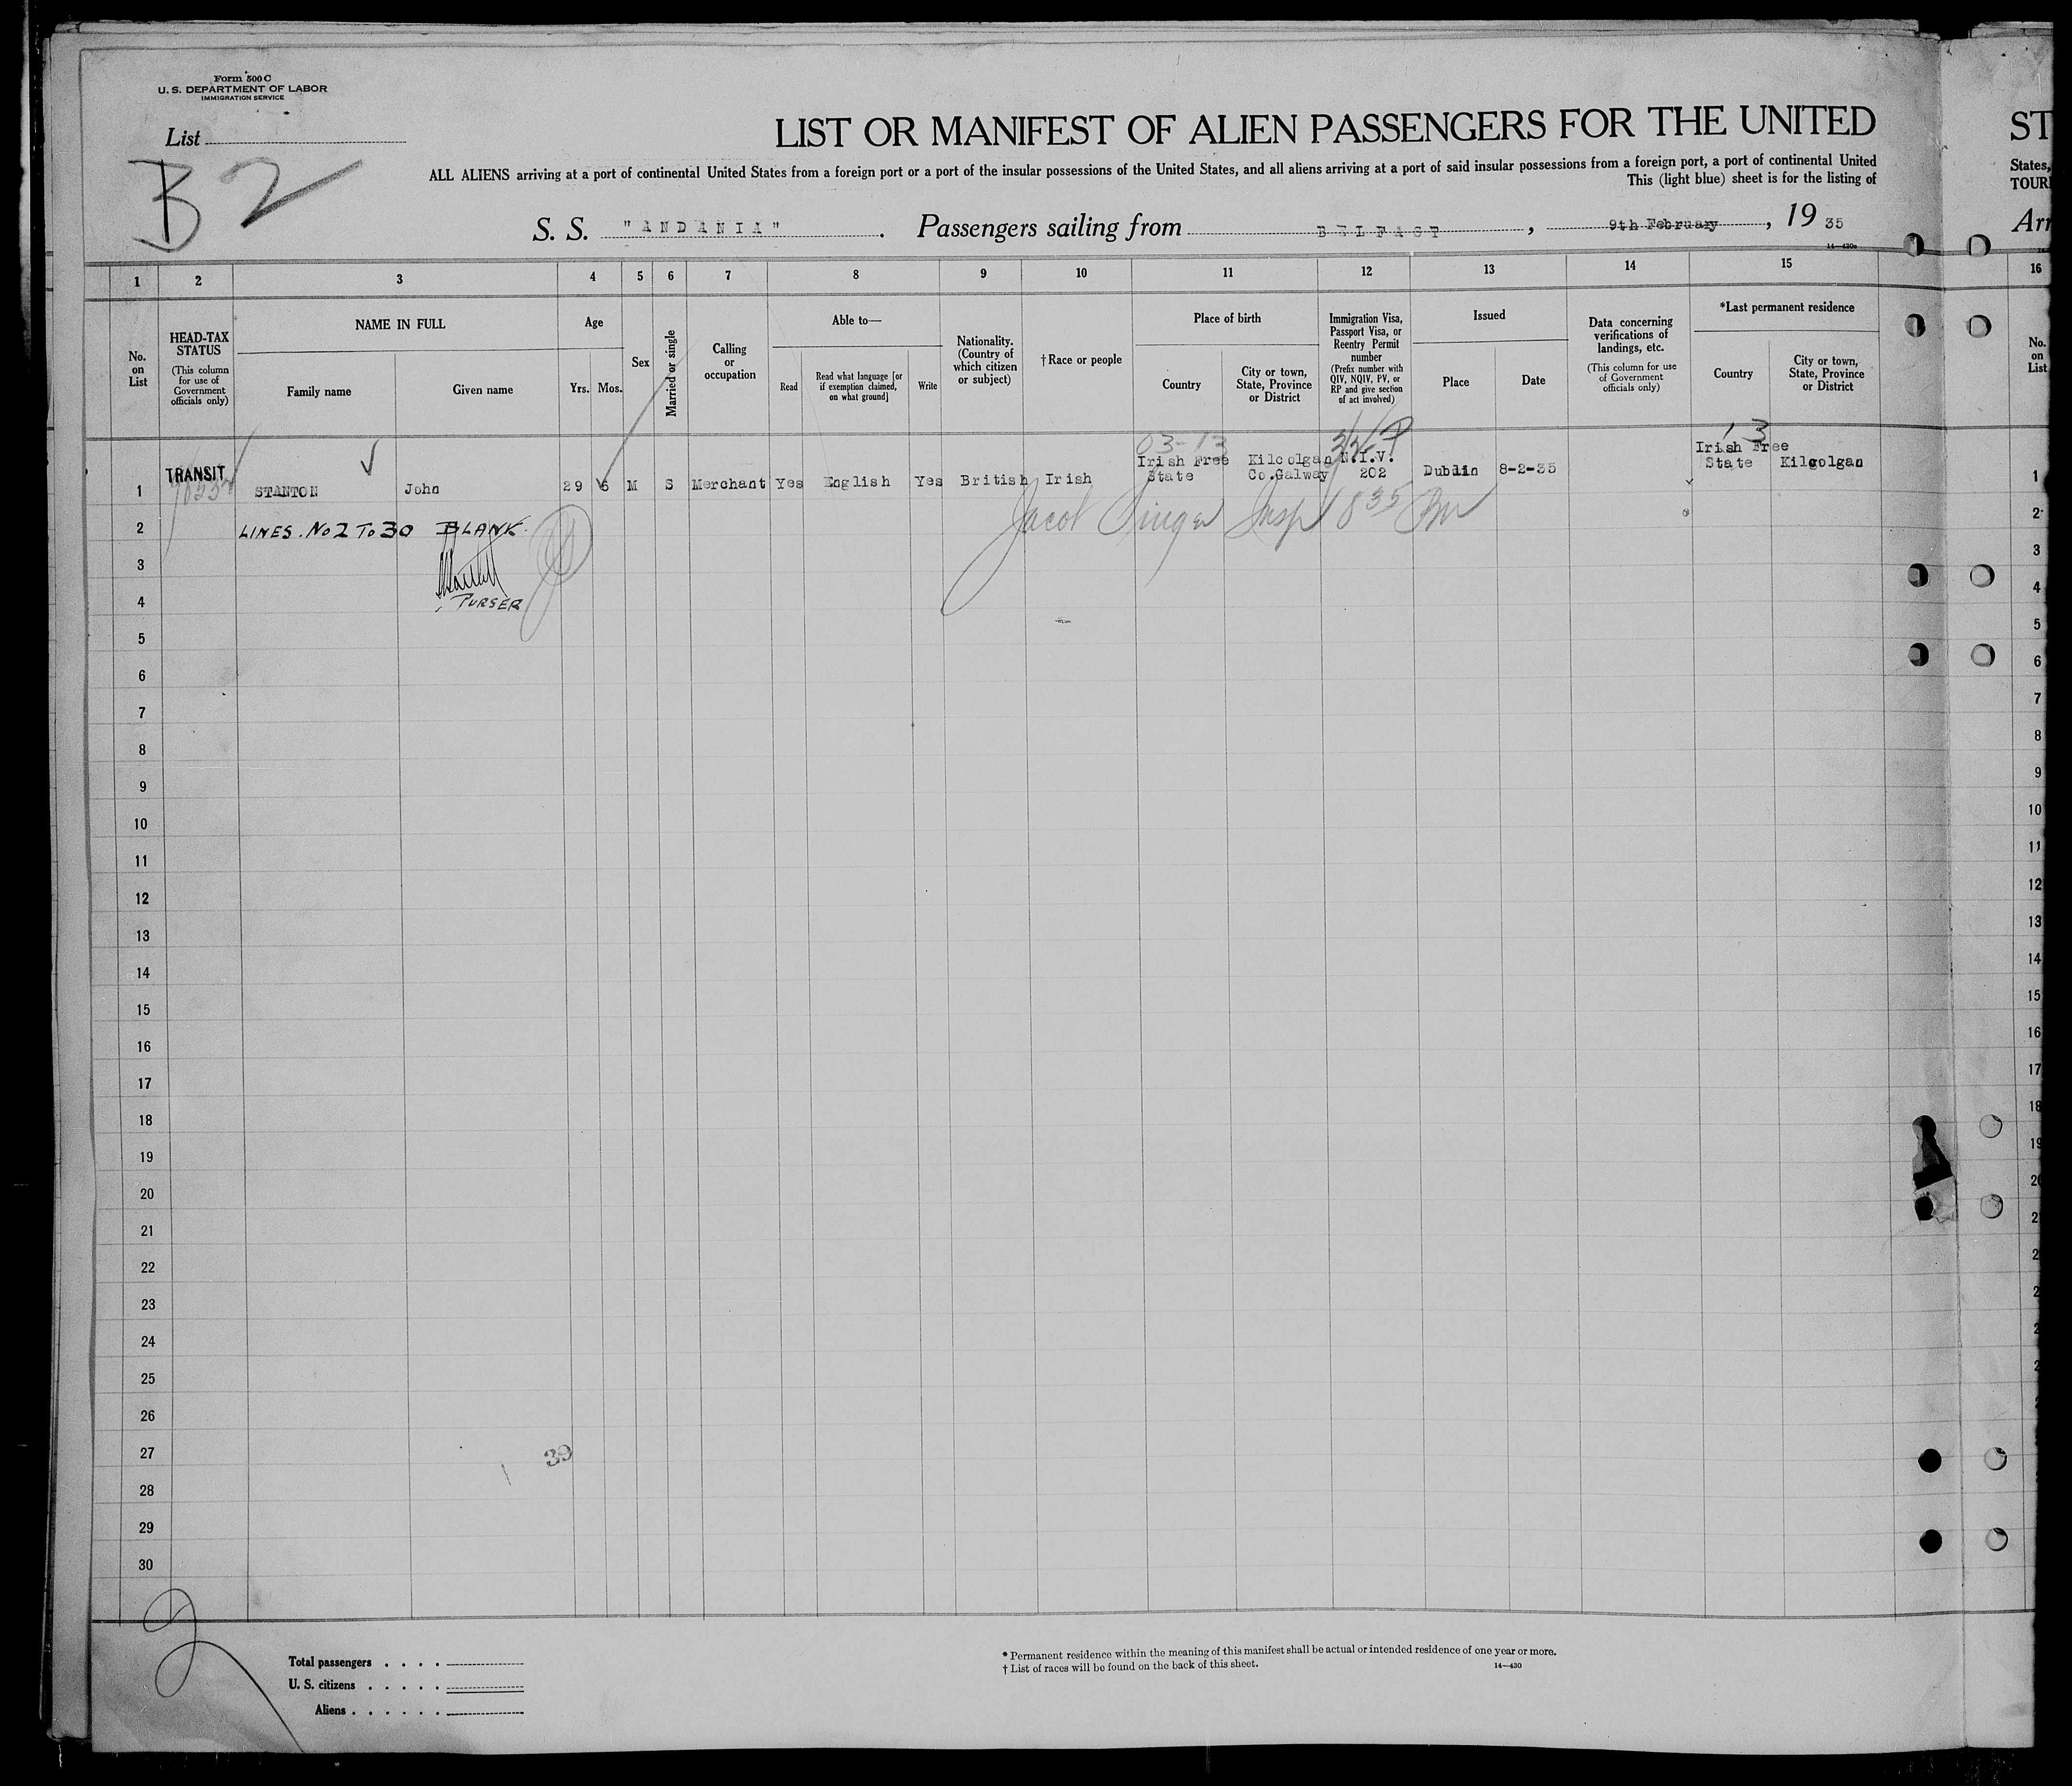 Form 500 C
U. S. DEPARTMENT OF LABOR
IMMIGRATION SERVICE
List
B 2
LIST OR MANIFEST OF ALIEN PASSENGERS FOR THE UNITED
ST
ALL ALIENS arriving at a port of continental United States from a foreign port or a port of the insular possessions of the United States, and all aliens arriving at a port of said insular possessions from a foreign port, a port of continental United
States,
This (light blue) sheet is for the listing of
TOUR
S. S. "ANDANIA". Passengers sailing from BELFAST, 9th February, 19 35
Arr
14—430c
1 2 3 4 5 6 7 8 9 10 11 12 13 14 15 16
No. on List
HEAD-TAX STATUS
(This column for use of Government officials only)
NAME IN FULL
Family name
Given name
Age
Yrs. Mos.
Sex
Married or single
Calling or occupation
Able to—
Read
Read what language [or if exemption claimed, on what ground]
Write
Nationality. (Country of which citizen or subject)
†Race or people
Place of birth
Country
City or town, State, Province or District
Immigration Visa, Passport Visa, or Reentry Permit number
(Prefix number with QIV, NQIV, PV, or RP and give section of act involved)
Issued
Place
Date
Data concerning verifications of landings, etc.
(This column for use of Government officials only)
*Last permanent residence
Country
City or town, State, Province or District
No. on List
03-13
3
1 TRANSIT STANTON John 29 6 M S Merchant Yes English Yes British Irish Irish Free State Kilcolgan Co.Galway N.I.V. 202 Dublin 8-2-35 Irish Free State Kilcolgan 1
2 LINES. No 2 To 30 BLANK. Jacob Singer Insp 2
3 3
PURSER
4 4
5 5
6 6
7 7
8 8
9 9
10 10
11 11
12 12
13 13
14 14
15 15
16 16
17 17
18 18
19 19
20 20
21 2
22 2
23 2
24 2
25 2
26
27
39
28
29
30
2
Total passengers . . . .
U. S. citizens . . . . .
Aliens . . . . . .
* Permanent residence within the meaning of this manifest shall be actual or intended residence of one year or more.
† List of races will be found on the back of this sheet.
14—430